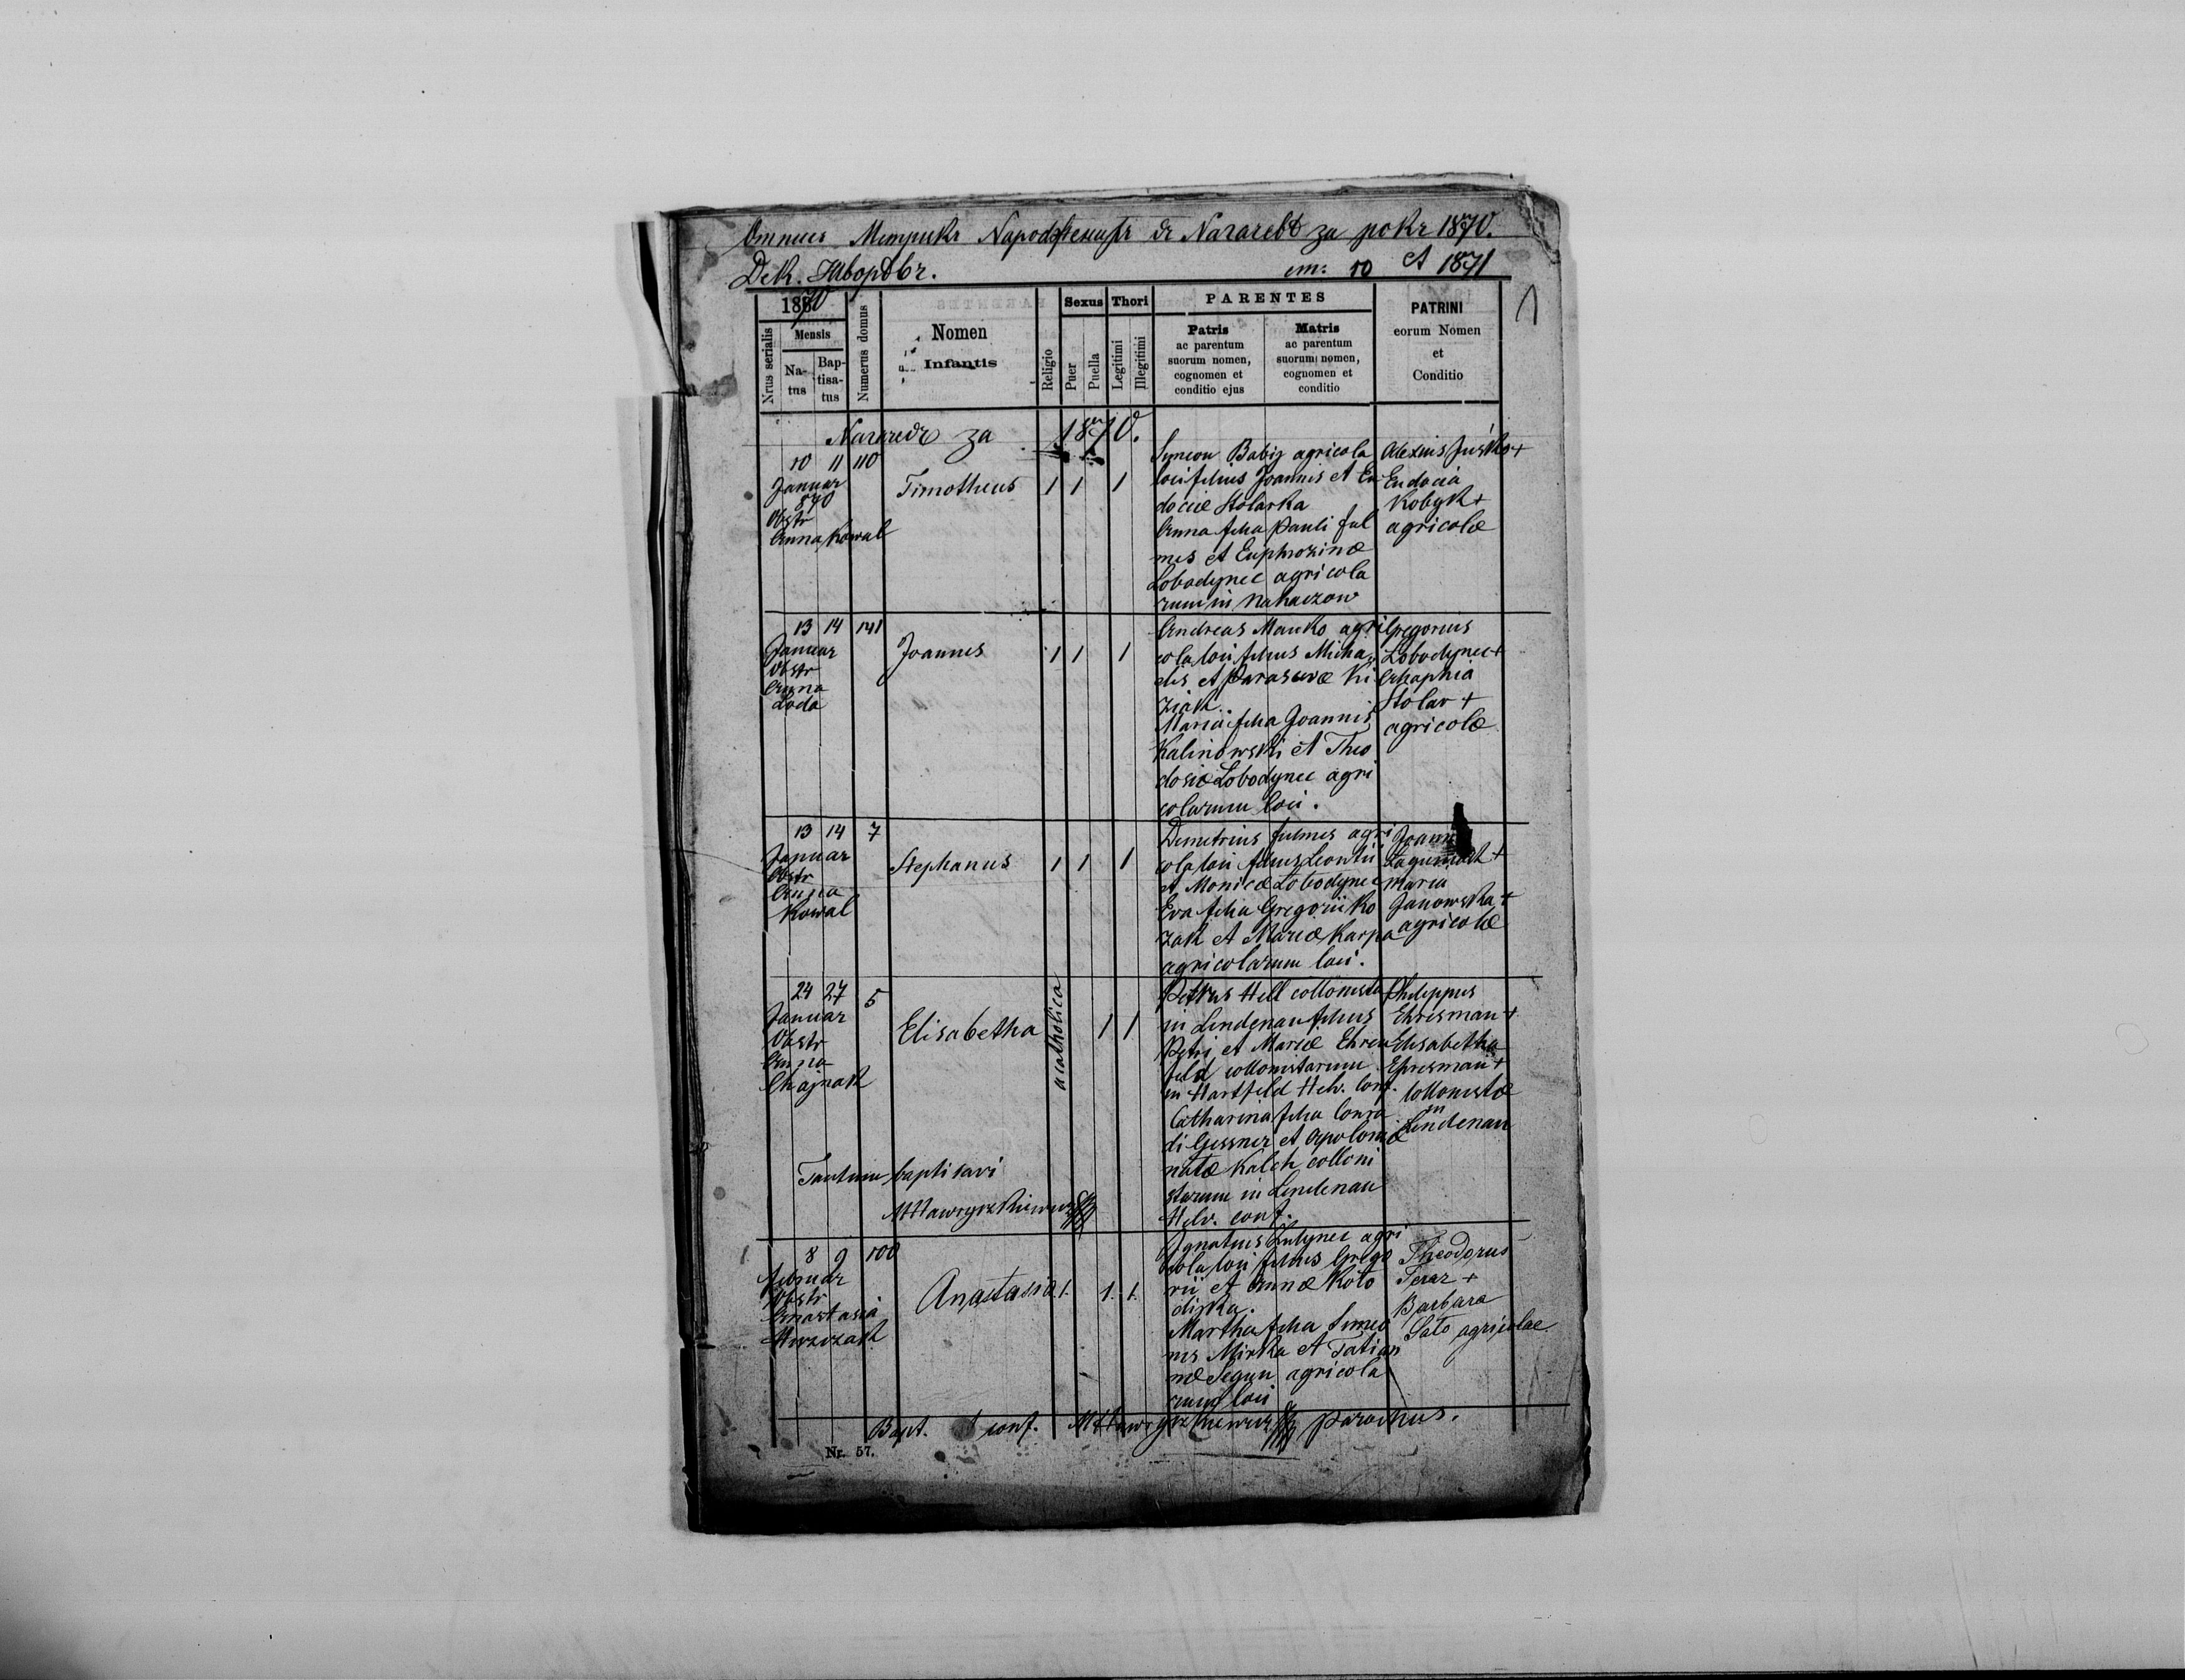 за рокъ 1870.
Дек. Яворôвъ. et 1871
1870
Nrus serialis
Mensis
Na-
tus
Bap-
tisa-
tus
Numerus domus
Nomen
Infantis
Religio
Sexus
Puer
Puella
Thori
Legitimi
Illegitimi
PARENTES
Patris
ac parentum
suorum nomen,
cognomen et
conditio ejus
Matris
ac parentum
suorum nomen,
cognomen et
conditio
PATRINI
eorum Nomen
et
Conditio
за 1870.
10 11 110
Januar
870
Obstr
Anna Kowal
Timotheus 1 1 1
Symeon Babij agricola
loci filius Joannis et Eu
dociæ Stolarka
Anna filia Pauli Ful
mes et Euphrozinæ
Lobodynec agricola
rum in Nahaczow
Alexius Juśko +
Eudocia
Kobyk +
agricolæ
13 14 141
Januar
Obstr
Anna
Loda
Joannes 1 1 1
Andreas Manko agri
cola loci filius Micha
elis et Parasevæ Ki
ziak.
Maria filia Joannis
Kalinowski et Theo
dosiæ Lobodynec agri
colarum loci.
Gregorius
Lobodynec +
Ahaphia
Stolar +
agricolæ
13 14 7
Januar
Obstr
Anna
Kowal
Stephanus 1 1 1
Demetrius Fulmes agri
cola loci filius Leontii
et Monicæ Lobodynec
Eva filia Gregorii Ko
zak et Mariæ Karpa
agricolarum loci.
Maria
Janowska +
agricolæ
24 27 5
Januar
Obstr
Anna
Chajnak
Elisabetha acatholica 1 1
Petrus Hell collonista
in Lindenau filius
Petri et Mariæ Ehren
feld collonistarum
in Hartfeld Helv. conf.
Catharina filia Conra
di Gessner et Apoloniæ
natæ Kalch colloni
starum in Lindenau
Helv. conf.
Philippus
Ehresman +
Elisabetha
Ehresman +
collonistæ
in
Lindenau
Tantum baptisavi
8 9 100
Februar
Obstr
Anastasia
Anastasia 1. 1. 1.
Ignatius Lulynec agri
cola loci filius Grego
rii et Annæ Koło
dijka.
Martha filia Simeo
nis Mirka et Tatian
næ Segun agricola
rum loci
Theodorus
Feraz +
Barbara
Sato agricolae
Bapt. et conf. parochus.
Nr. 57.